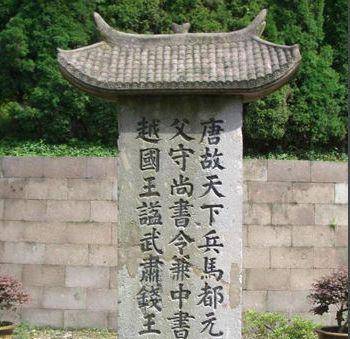 唐故天下兵馬都元
父守尚書令兼中書
越國王謚武肅錢王